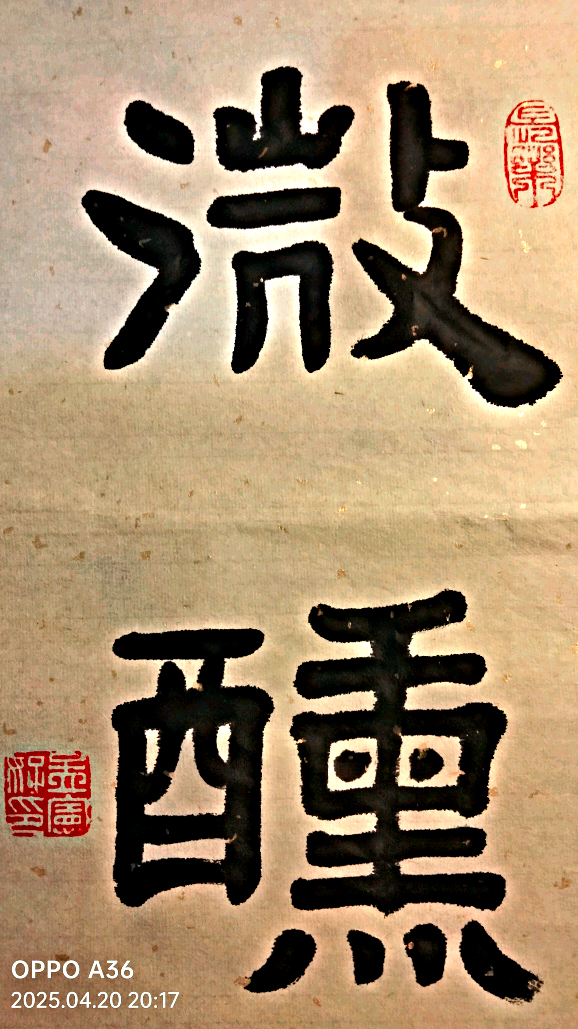 微
醺
OPPO A36
2025.04.20 20:17